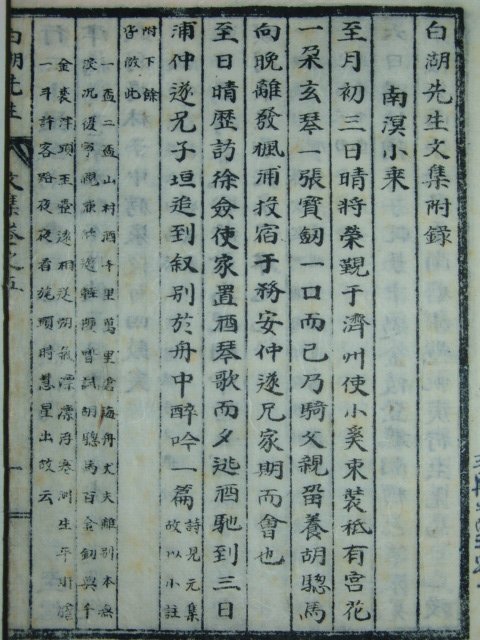 白湖先生文集附錄
南溟小乘
至月初三日晴將榮覲于濟州使小奚束裝秪有宮花
一朶玄琴一張寶劒一口而已乃騎父親畱養胡驄馬
向晚離發楓浦投宿于務安仲遂兄家期而會也
至日晴歷訪徐僉使家置酒琴歌而夕逃酒馳到三日
浦仲遂兄子垣追到叙別於舟中醉吟一篇詩見元集
故以小註
附下餘
皆倣此
一盃二盃山村酒千里萬里滄海舟丈夫離別本無
淚況復寧親兼壯遊輕嘗試胡驄馬百金劒與千
金裘津頭玉壺遠相送朔氣漂漂生平
一斗許客路夜夜看旄頭時慧星出故云
白湖先生文集卷之五
一